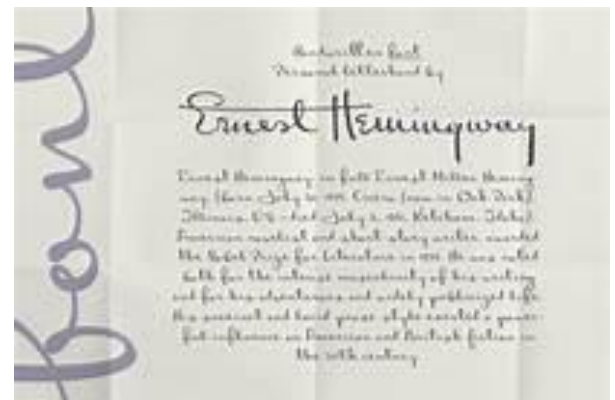 Handwritten font
Personal letterhand by
Ernest Hemingway
Ernest Hemingway in full Ernest Miller Heming
way (born July 21, 1899, Cicero [now in Oak Park],
Illinois, U.S.-died July 2, 1961, Ketchum, Idaho),
American novelist and short story writer awarded
the Nobel Prize for Literature in 1954. He was noted
both for the intense masculinity of his writing
and for his adventurous and widely publicized life.
His succinct and lucid prose style exerted a power
ful influence on American and British fiction in
the 20th century
font